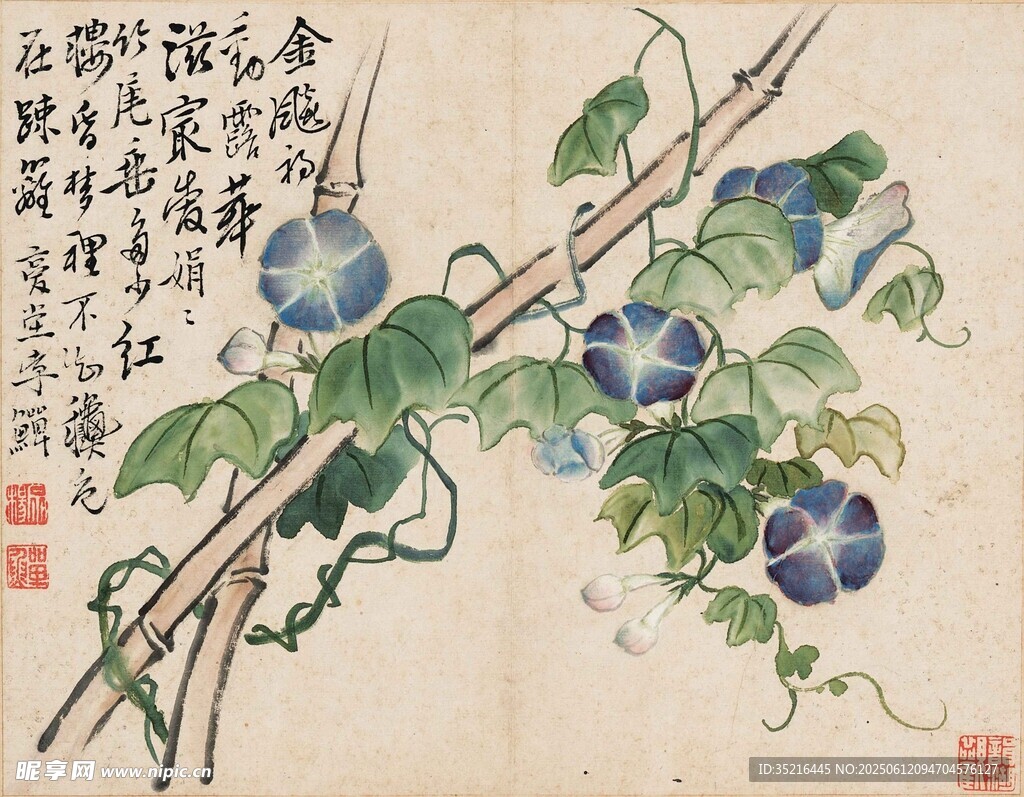 金飈初
動露華
滋㝡愛娟〻
竹尾垂多少紅
樓昏梦裡不知龝色
在踈籬 復堂李鱓
昵享网 www.nipic.cn
ID:35216445 NO:20250612094704576127